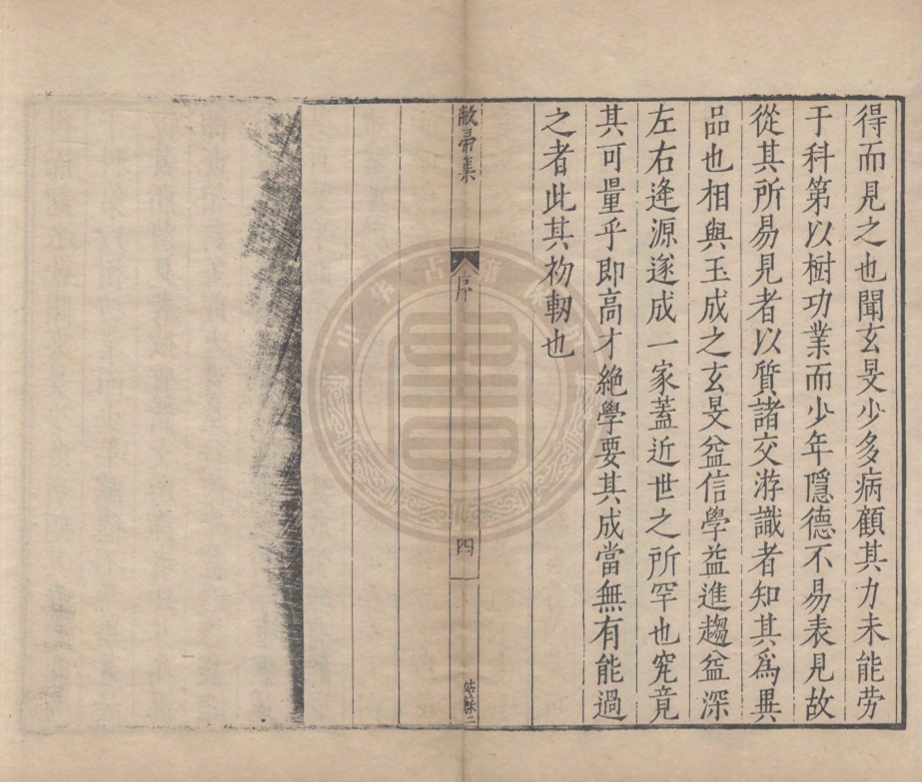 得而見之也聞玄旻少多病顧其力未能勞
于科第以樹功業而少年隱德不易表見故
從其所易見者以質諸交游識者知其爲異
品也相與玉成之玄旻益信學益進趨益深
左右逢源遂成一家蓋近世之所罕也究竟
其可量乎即高才絶學要其成當無有能過
之者此其初軔也
敝帚集
序
四